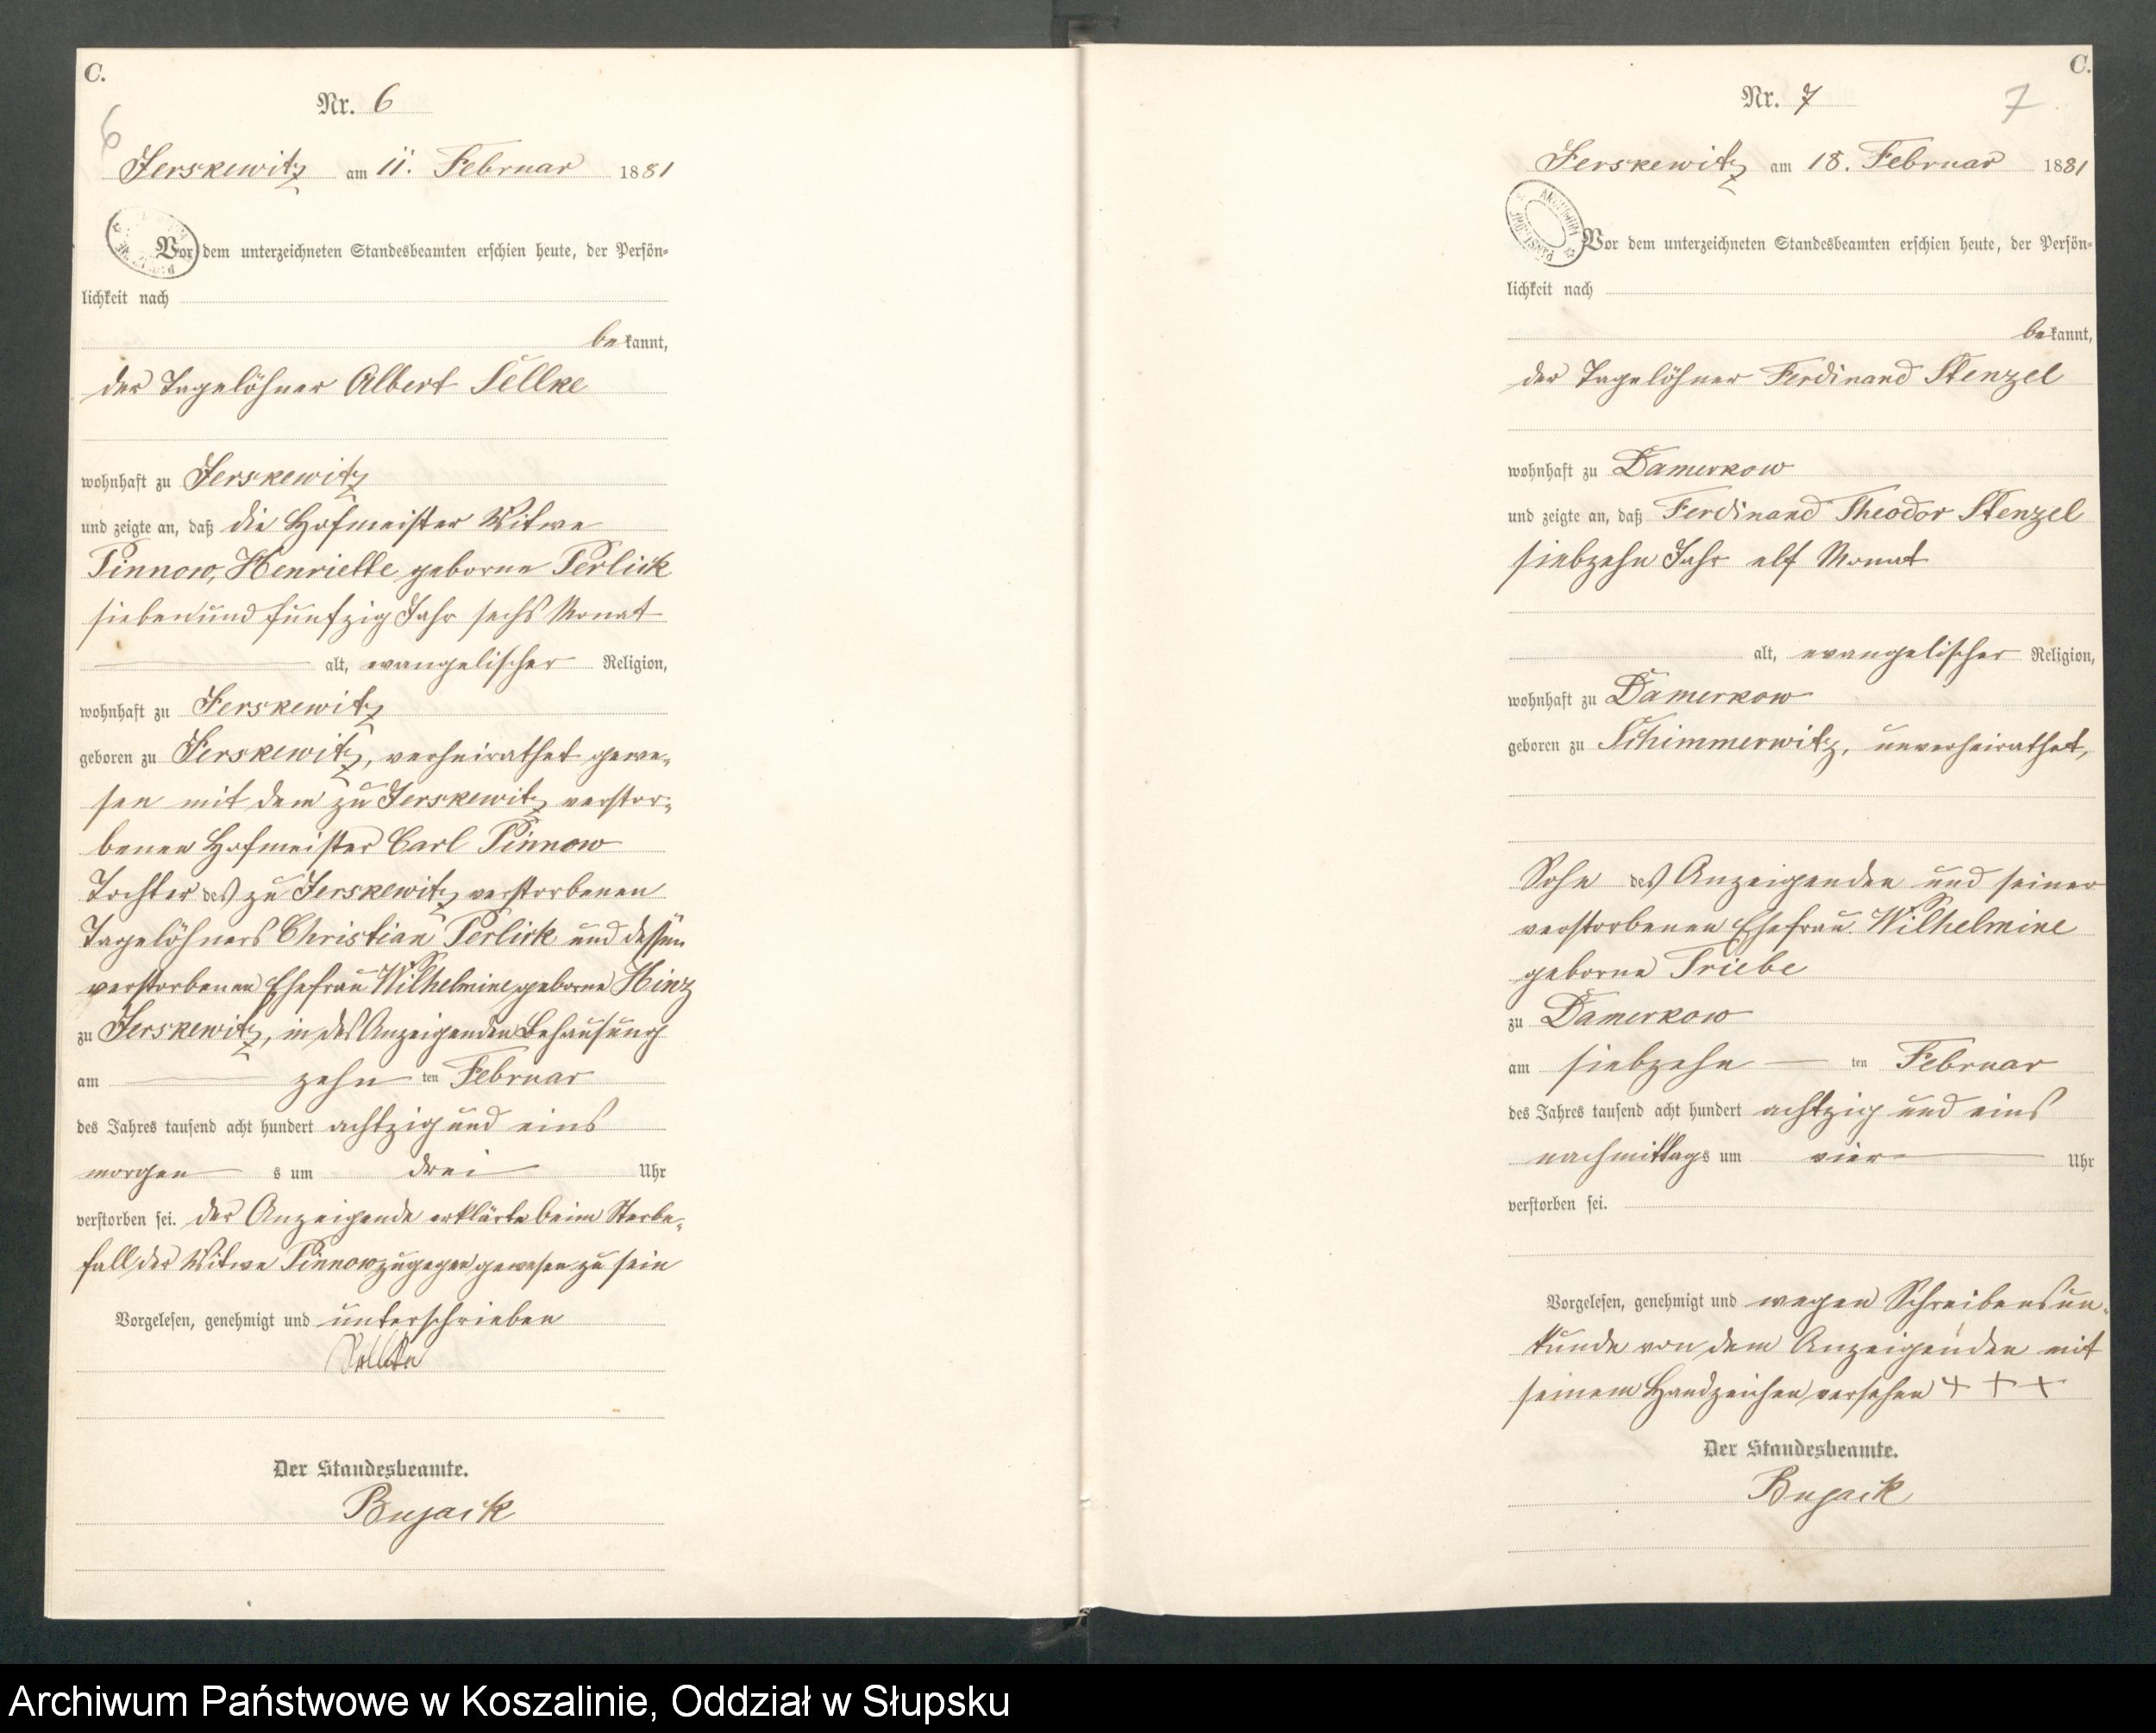 C.
Nr. 6
6
Jerskewitz am 11. Februar 1881
Vor dem unterzeichneten Standesbeamten erschien heute, der Persön=
lichkeit nach
bekannt,
der Tagelöhner Albert Sellke
wohnhaft zu Jerskewitz
und zeigte an, daß die Hofmeister Witwe
Pinnow, Henriette geborne Perlick
siebenundfünfzig Jahr sechs Monat
alt, evangelischer Religion,
wohnhaft zu Jerskewitz
geboren zu Jerskewitz, verheirathet gewe=
sen mit dem zu Jerskewitz verstor=
benen Hofmeister Carl Pinnow
Tochter des zu Jerskewitz verstorbenen
Tagelöhners Christian Perlick und dessen
verstorbenen Ehefrau Wilhelmine geborne Hinz
zu Jerskewitz, in des Anzeigenden Behausung
am zehn ten Februar
des Jahres tausend acht hundert achtzig und eins
morgen s um drei Uhr
verstorben sei. Der Anzeigende erklärte beim Sterbe=
fall der Witwe Pinnow zugegen gewesen zu sein
Vorgelesen, genehmigt und unterschrieben
Sellke
Der Standesbeamte.
Bujack
C.
Nr. 7
7
Jerskewitz am 18. Februar 1881
Vor dem unterzeichneten Standesbeamten erschien heute, der Persön=
lichkeit nach
bekannt,
der Tagelöhner Ferdinand Stenzel
wohnhaft zu Damerkow
und zeigte an, daß Ferdinand Theodor Stenzel
siebzehn Jahr elf Monat
alt, evangelischer Religion,
wohnhaft zu Damerkow
geboren zu Schimmerwitz, unverheirathet,
Sohn des Anzeigenden und seiner
verstorbenen Ehefrau Wilhelmine
geborne Triebe
zu Damerkow
am siebzehn ten Februar
des Jahres tausend acht hundert achtzig und eins
nachmittags um vier Uhr
verstorben sei.
Vorgelesen, genehmigt und wegen Schreibensun=
kunde von dem Anzeigenden mit
seinem Handzeichen versehen + + +
Der Standesbeamte.
Bujack
Archiwum Państwowe w Koszalinie, Oddział w Słupsku